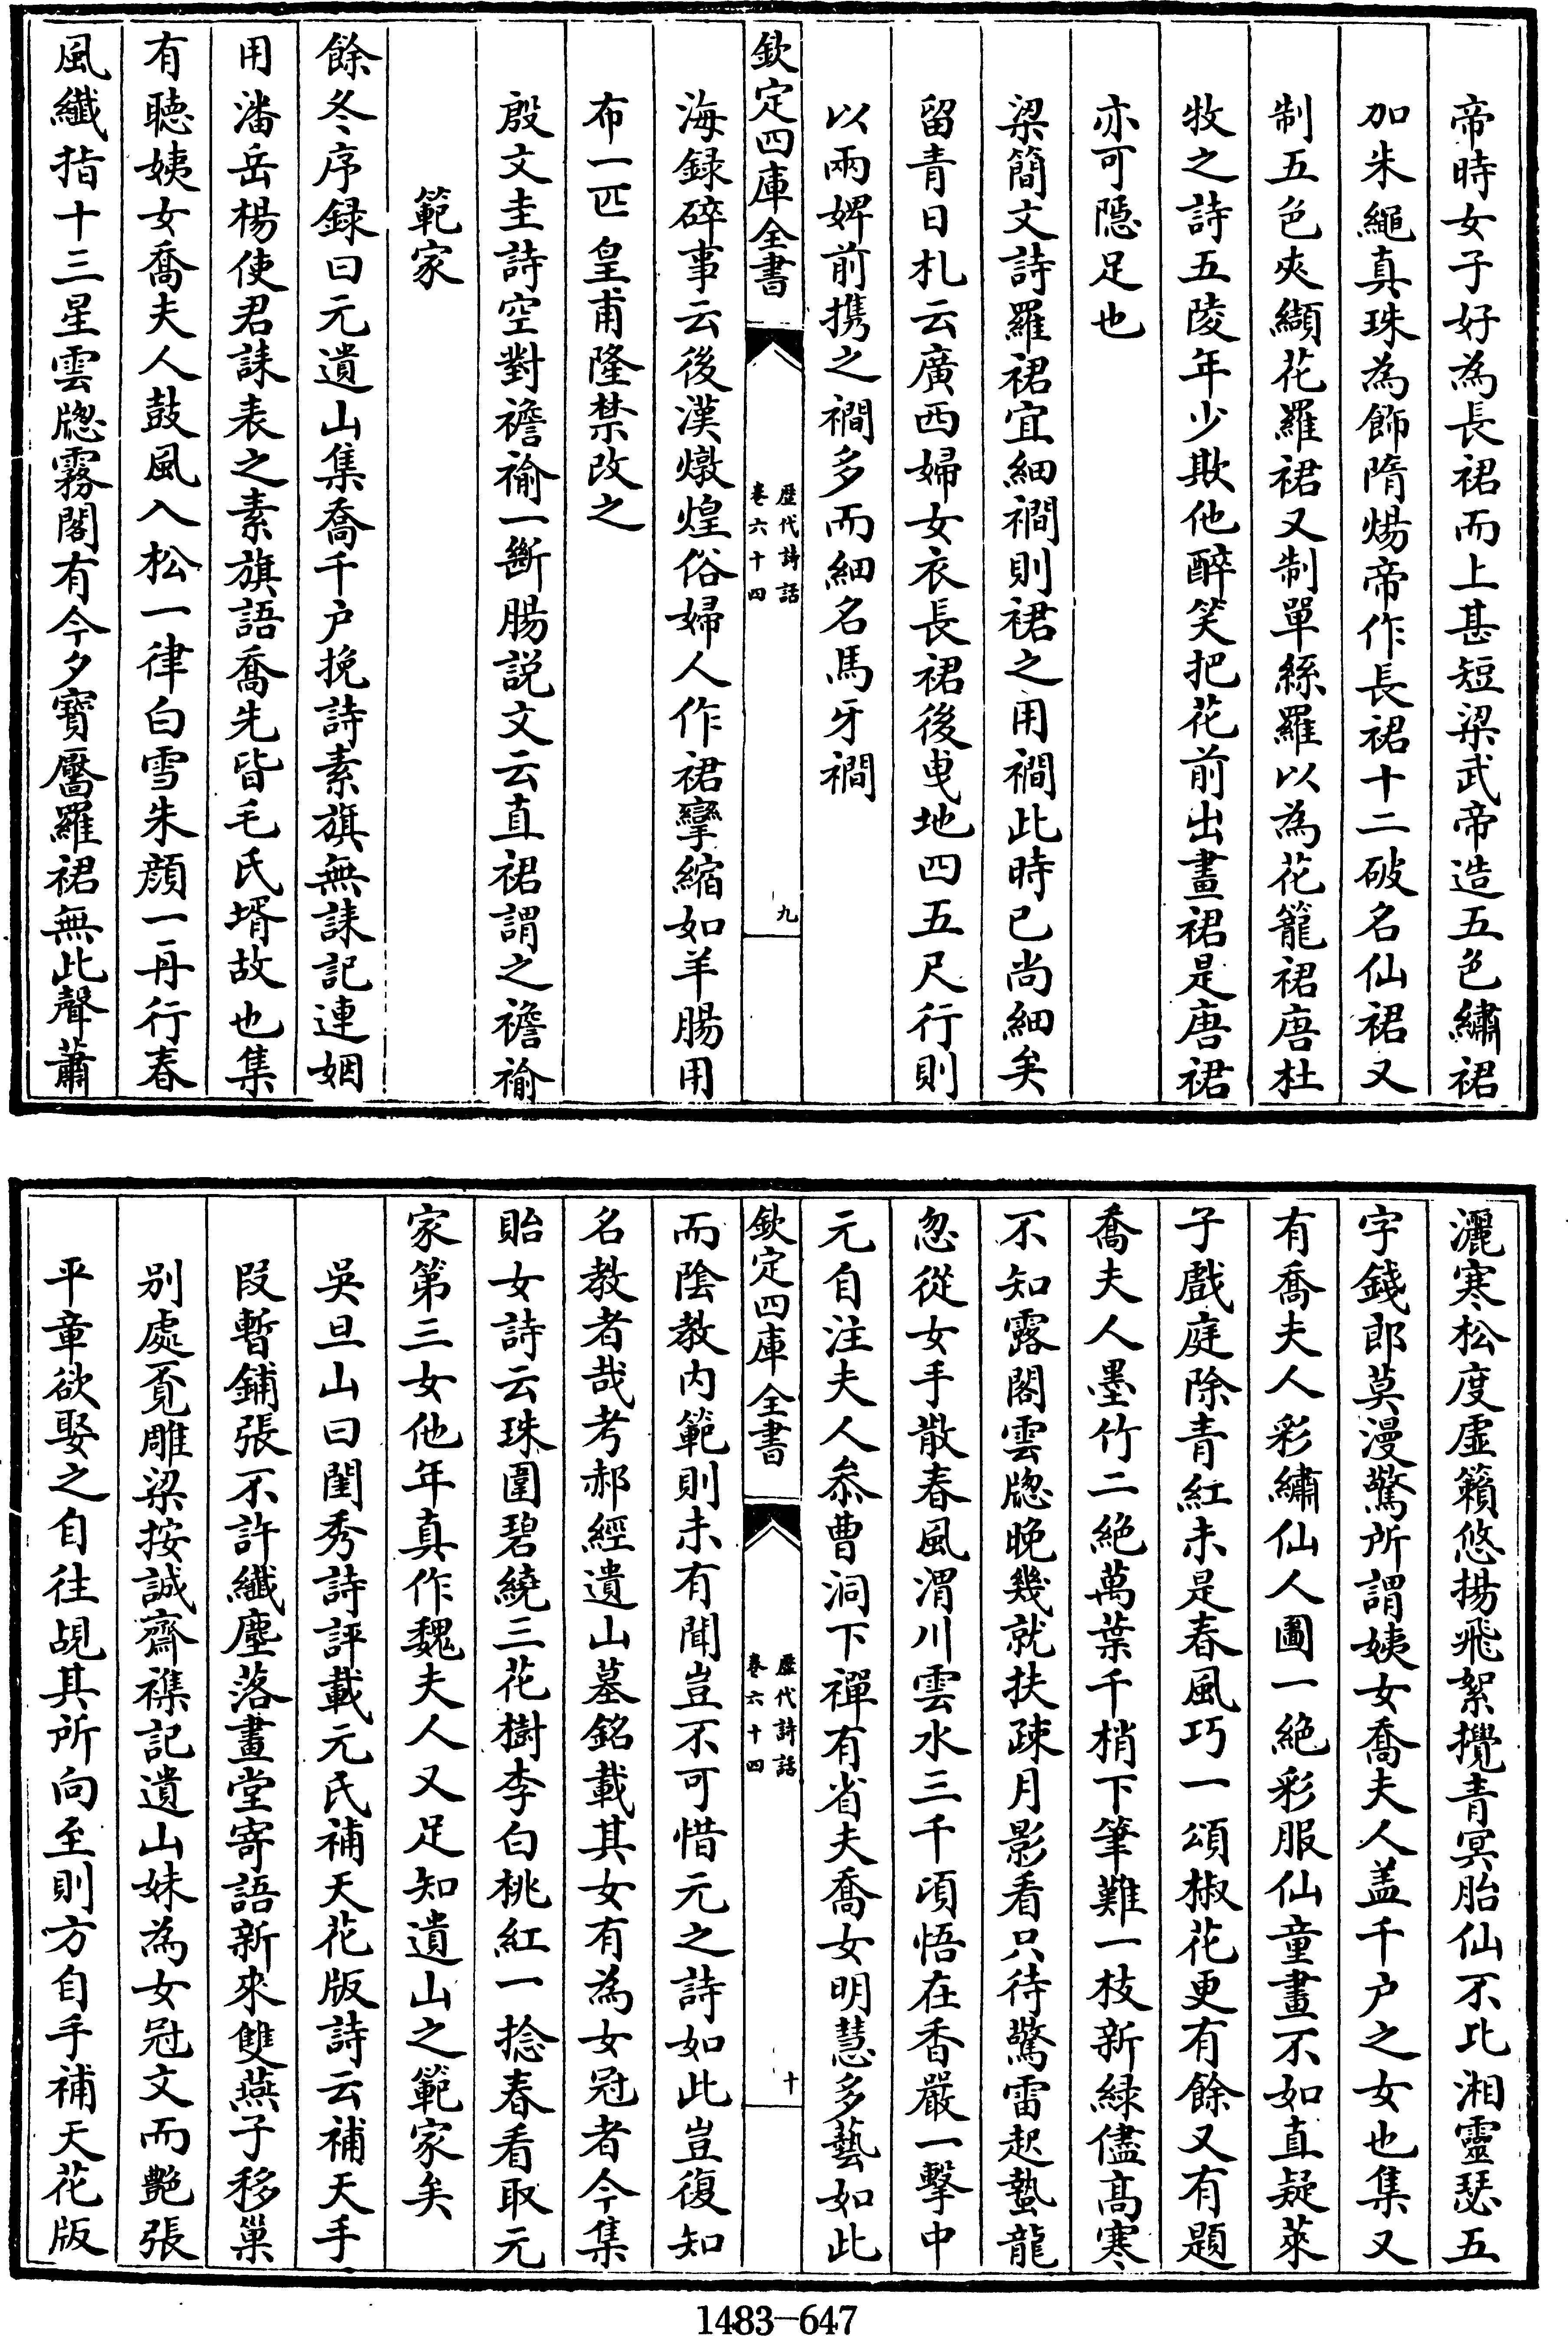 帝時女子好為長裙而上甚短梁武帝造五色繡裙
加朱繩真珠為飾隋煬帝作長裙十二破名仙裙又
制五色夾纈花羅裙又制單絲羅以為花籠裙唐杜
牧之詩五陵年少欺他醉笑把花前出畫裙是唐裙
亦可隱足也
梁簡文詩羅裙宜細襉則裙之用襉此時已尚細矣
留青日札云廣西婦女衣長裙後曳地四五尺行則
以兩婢前攜之襉多而細名馬牙襉
欽定四庫全書
歷代詩話
卷六十四
九
海録碎事云後漢燉煌俗婦人作裙攣縮如羊腸用
布一匹皇甫隆禁改之
殷文圭詩空對襜褕一斷腸説文云直裾謂之襜褕
範家
餘冬序録曰元遺山集喬千户挽詩素旗無誄記連姻
用潘岳楊使君誄表之素旗語喬先皆毛氏壻故也集
有聽姨女喬夫人鼓風入松一律白雪朱顔一再行春
風纖指十三星雲牕霧閣有今夕寶靨羅裙無此聲蕭
灑寒松度虛籟悠揚飛絮攪青冥胎仙不比湘靈瑟五
字錢郎莫漫驚所謂姨女喬夫人盖千户之女也集又
有喬夫人彩繡仙人圖一絶彩服仙童畫不如直疑萊
子戲庭除青紅未是春風巧一頌椒花更有餘又有題
喬夫人墨竹二絶萬葉千梢下筆難一枝新緑儘高寒
不知露閣雲牕晚幾就扶疎月影看只待驚雷起蟄龍
忽從女手散春風渭川雲水三千頃悟在香嚴一擊中
元自注夫人叅曹洞下禪有省夫喬女明慧多藝如此
欽定四庫全書
歷代詩話
卷六十四
十
而陰教内範則未有聞豈不可惜元之詩如此豈復知
名教者哉考郝經遺山墓銘載其女有為女冠者今集
貽女詩云珠圍碧繞三花樹李白桃紅一捻春看取元
家第三女他年真作魏夫人又足知遺山之範家矣
吳旦山曰閨秀詩評載元氏補天花版詩云補天手
段暫鋪張不許纖塵落畫堂寄語新來雙燕子移巢
別處覓雕梁按誠齋襍記遺山妹為女冠文而艷張
平章欲娶之自往覘其所向至則方自手補天花版
1483-647